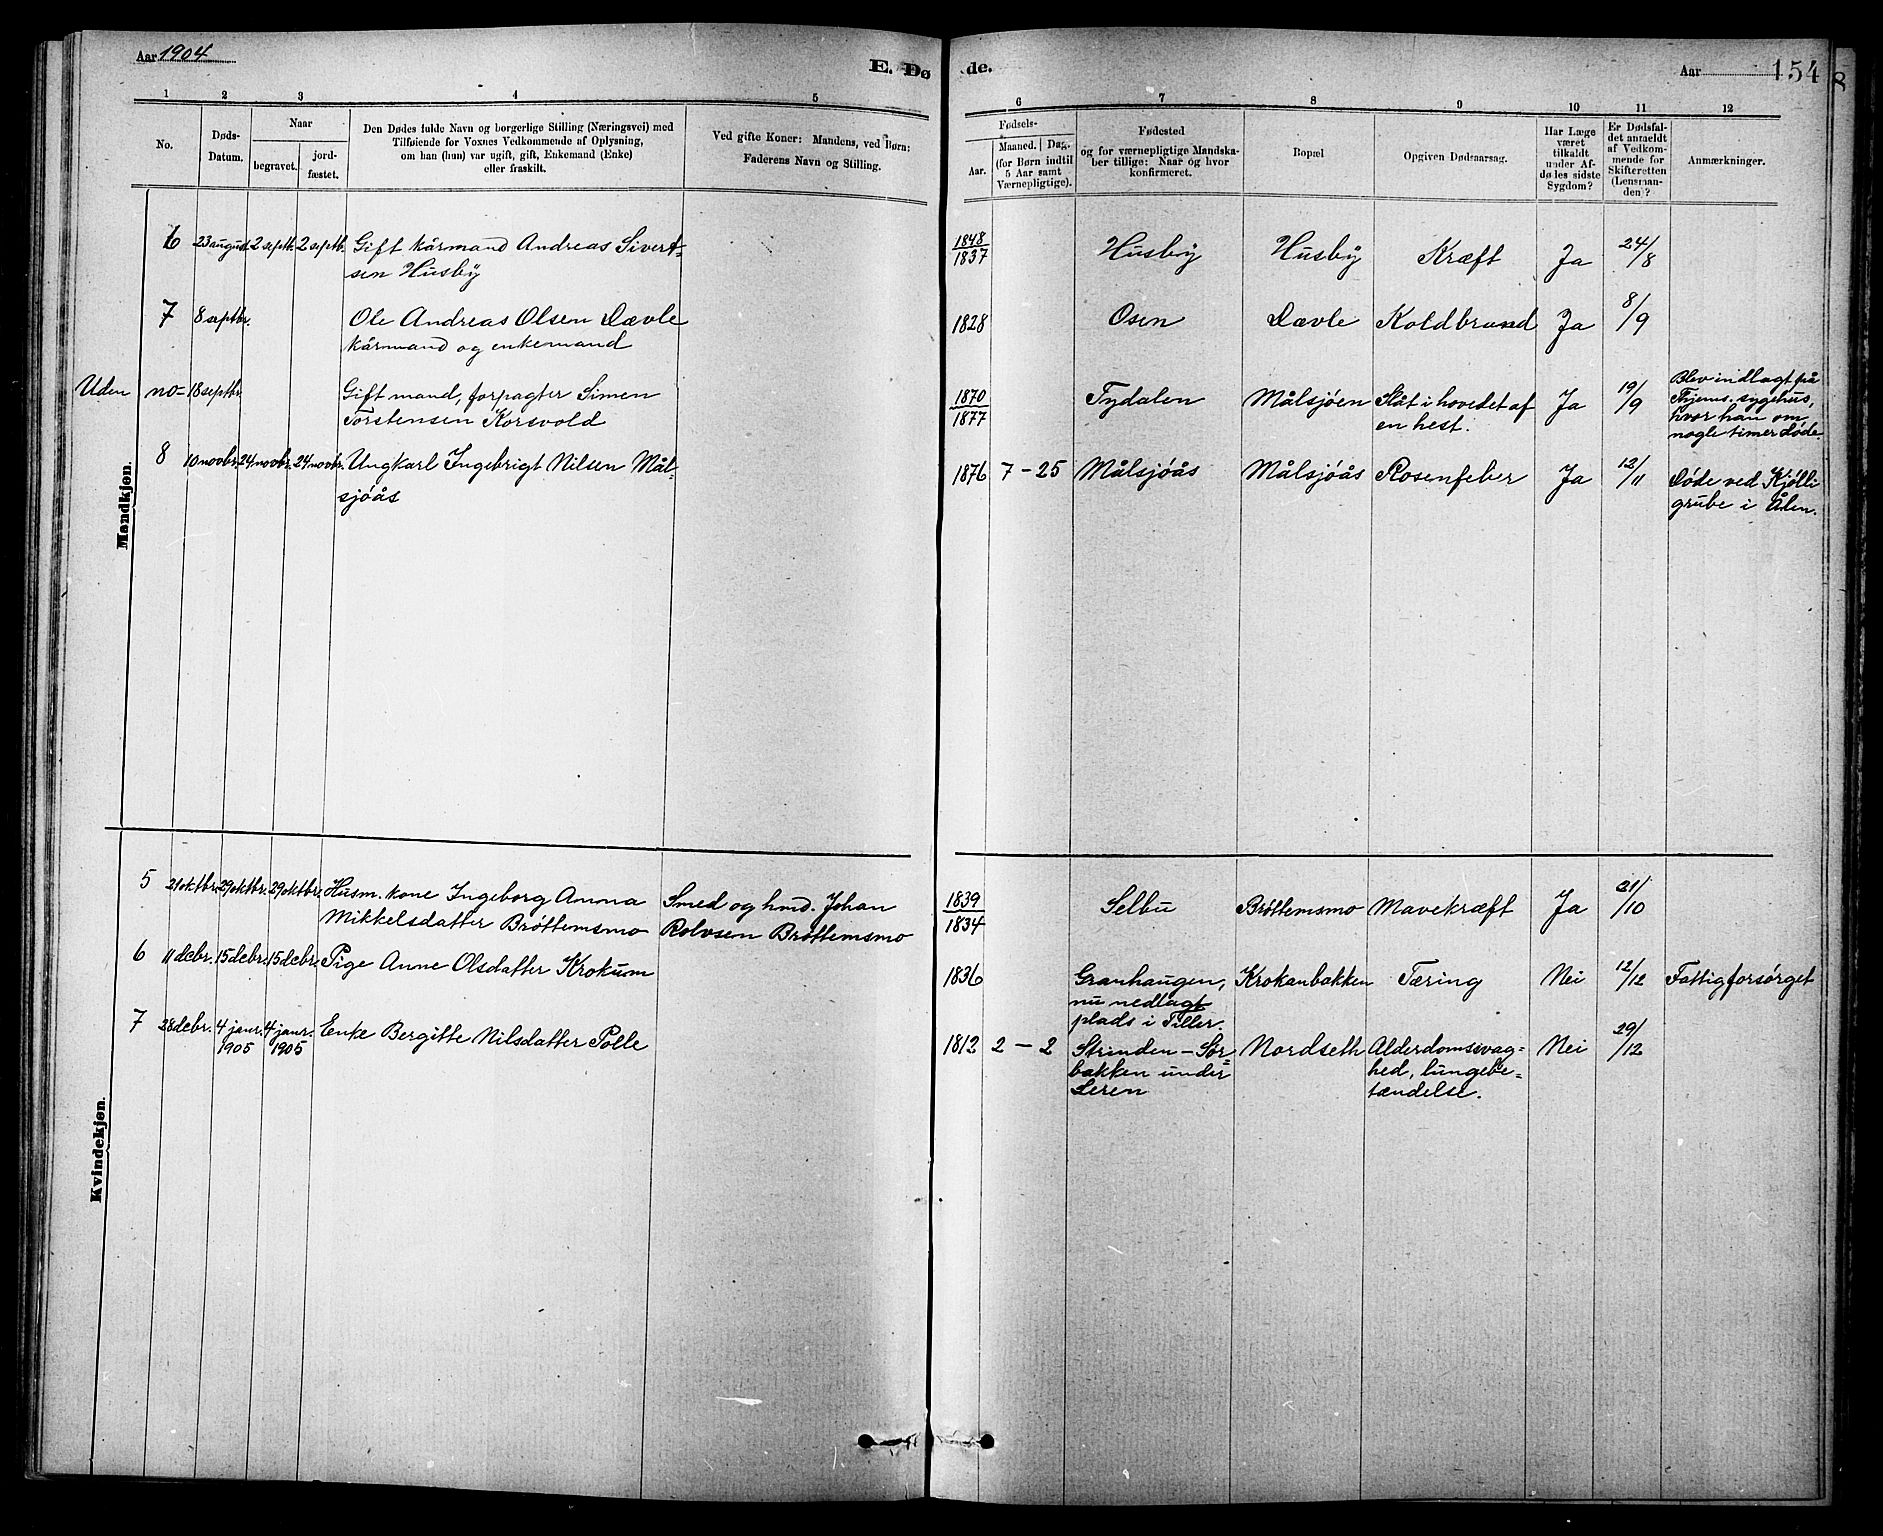 Aar 1904
E. Dø
de.
Aar
154
8
1 2 3 4 5
6 7 8 9 10 11 12
No.
Døds-
Datum.
Naar
begravet.
jord-
fæstet.
Den Dødes fulde Navn og borgerlige Stilling (Næringsvei) med
Tilføiende for Voxnes Vedkommende af Oplysning,
om han (hun) var ugift, gift, Enkemand (Enke)
eller fraskilt.
Ved gifte Koner: Mandens, ved Børn:
Faderens Navn og Stilling.
Fødsels-
Aar.
Maaned. Dag.
(for Børn indtil
5 Aar samt
Værnepligtige).
Fødested
og for værnepligtige Mandska-
ber tillige: Naar og hvor
konfirmeret.
Bopæl
Opgiven Dødsaarsag.
Har Læge
været
tilkaldt
under Af-
dødes sidste
Sygdom?
Er Dødsfal-
det anmeldt
af Vedkom-
mende for
Skifteretten
(Lensman-
den?
Anmærkninger.
Mandkjøn.
6 23 august 2 septb. 2 septb. Gift kårmand Andreas Sivert-
sen Husby
1848
1837
Husby Husby Kræft Ja 24/8
7 8 septbr. Ole Andreas Olsen Løvle
kårmand og enkemand
1828 Osen Løvle Koldbrand Ja 8/9
Uden no- 18 septbr. Gift mand, forpagter Simen
Torstensen Korsvold
1870
1877
Tydalen Målsjøen Slåt i hovedet af
en hest.
Ja 19/9
Blev indlagt på
Thjems. sygehus,
hvor han om
nogle timer døde.
8 10 novbr. 24 novbr. 24 novbr. Ungkarl Ingebrigt Nilsen Mål-
sjøås
1876 7 - 25 Målsjøås Målsjøås Rosenfeber Ja 12/11
Døde ved Kjøli
grube i Ålen.
Kvindekjøn.
5 21 oktbr. 29 oktbr. 29 oktbr. Husm. kone Ingeborg Anna
Mikkelsdatter Brøttemsmo
Smed og hmd. Johan
Rolvsen Brøttemsmo
1839
1834
Selbu Brøttemsmo Mavekræft Ja 31/10
6 11 debr. 15 debr. 15 debr. Pige Anne Olsdatter Krokum
1836 Granhaugen,
nu nedlagt
plads i Tiller.
Krokanbakken Tæring Nei 12/12 Fattigforsørget
7 28 debr. 4 janr. 1905 4 janr. 1905 Enke Bergitte Nilsdatter Polle
1812 2 - 2 Strinden - Sør-
bakken under
Leren
Nordseth Alderdomssvag=
hed, lungebe=
tændelse.
Nei 29/12